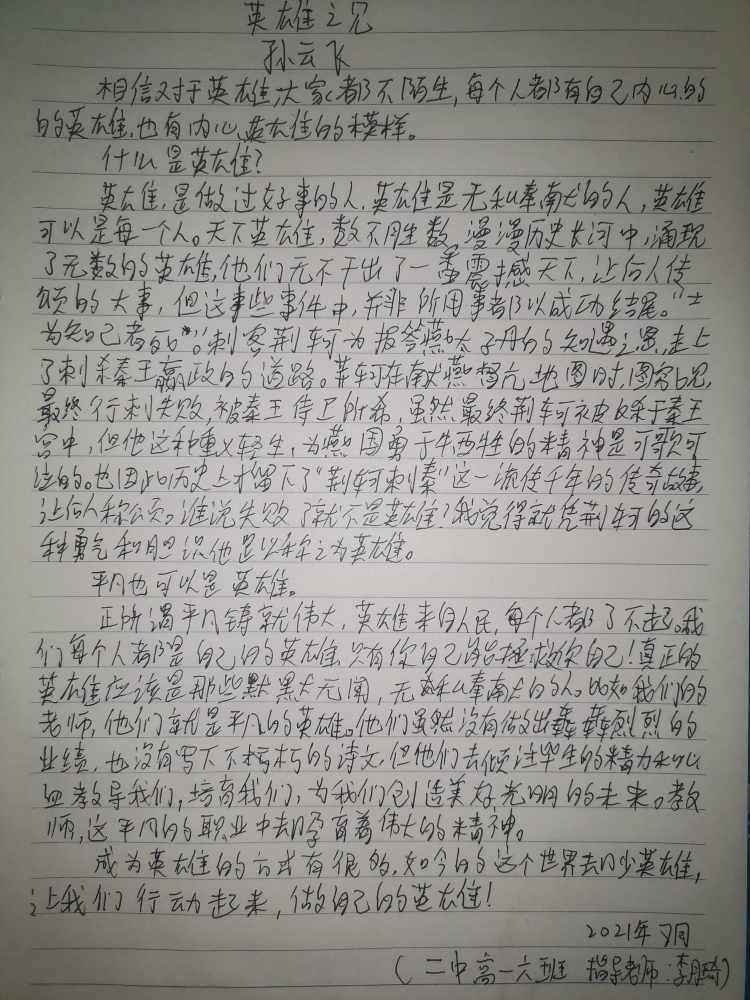 英雄之见
孙云飞
相信对于英雄,大家都不陌生,每个人都有自己内心的
的英雄,也有内心英雄的模样。
什么是英雄?
英雄,是做过好事的人,英雄是无私奉献的人,英雄
可以是每一个人。天下英雄,数不胜数,漫漫历史长河中,涌现
了无数的英雄,他们无不干出了一番震撼天下,让后人传
颂的大事,但这些事件中,并非所用事都以成功结尾。“士
为知己者死”。刺客荆轲为报答燕太子丹的知遇之恩,走上
了刺杀秦王嬴政的道路。荆轲在献燕督亢地图时,图穷匕见,
最终行刺失败,被秦王侍卫所希,虽然最终荆轲被反杀于秦王
宫中,但他这种重义轻生,为燕国勇于牺牲的精神是可歌可
泣的。也因此历史上才留下了“荆轲刺秦”这一流传千年的传奇故事,
让后人称颂。谁说失败了就不是英雄?我觉得就凭荆轲的这
种勇气和胆识他足以称之为英雄。
平凡也可以是英雄。
正所谓平凡铸就伟大,英雄来自人民,每个人都了不起。我
们每个人都是自己的英雄,只有你自己能拯救你自己!真正的
英雄应该是那些默默无闻,无私奉献的人。比如我们的
老师,他们就是平凡的英雄。他们虽然没有做出轰轰烈烈的
业绩,也没有写下不朽的诗文,但他们却倾注毕生的精力和心
血教导我们,培育我们,为我们创造美好光明的未来。教
师,这平凡的职业中却孕育着伟大的精神。
成为英雄的方式有很多,如今的这个世界却少英雄,
让我们行动起来,做自己的英雄!
2021年 月
(二中高一六班 指导老师:李月琦)